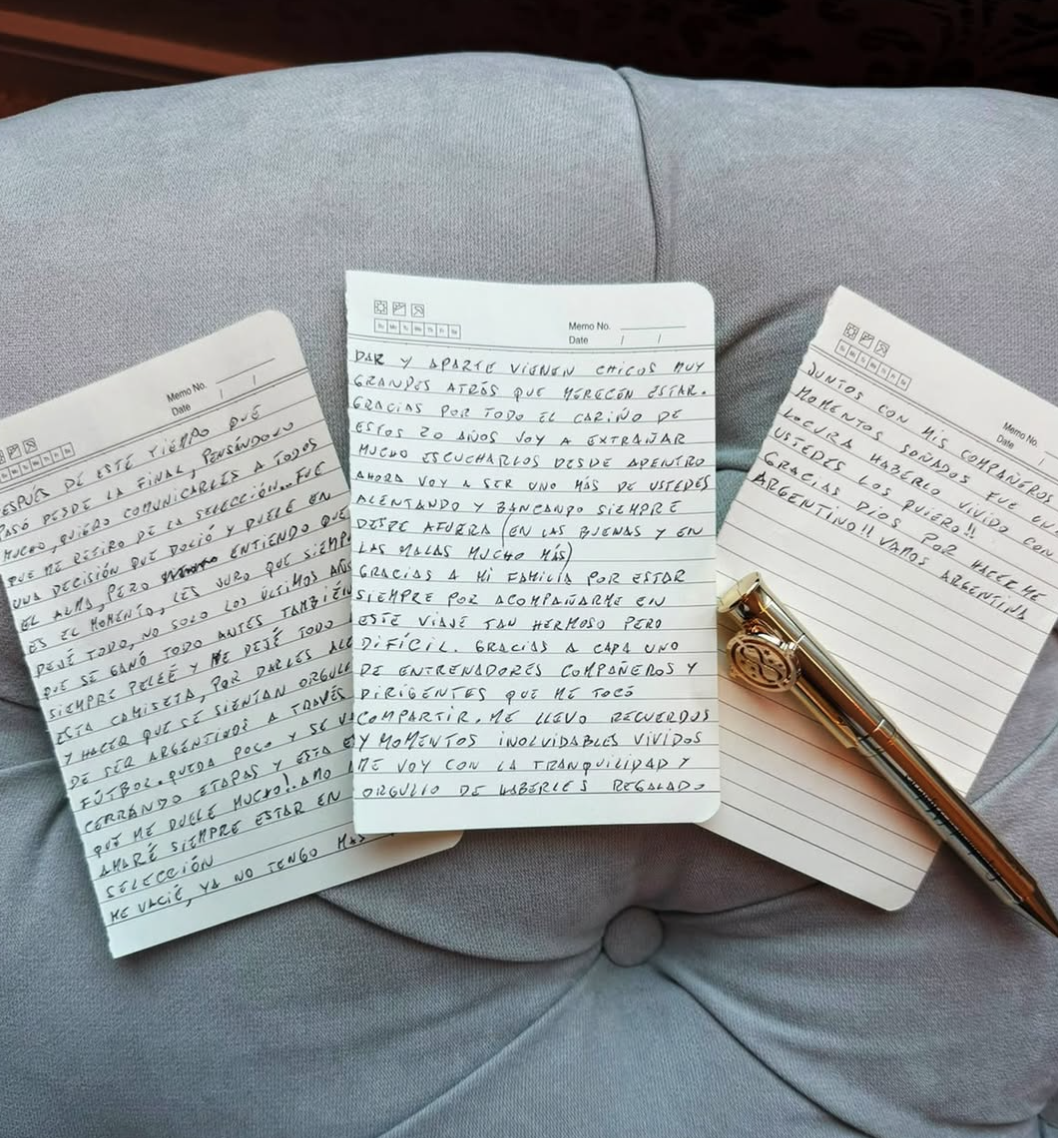 Memo No.
Date / /
ESPUÉS DE ESTE TIEMPO QUE
PASÓ DESDE LA FINAL, PENSÁNDOLO
MUCHO, QUIERO COMUNICARLES A TODOS
QUE ME RETIRO DE LA SELECCIÓN... FUE
UNA DECISIÓN QUE DOLIÓ Y DUELE EN
EL ALMA, PERO ENTIENDO QUE
ES EL MOMENTO, LES JURO QUE SIEMP
DEJÉ TODO, NO SOLO LOS ÚLTIMOS AÑOS
QUE SE GANÓ TODO ANTES TAMBIÉN
SIEMPRE PELEÉ Y ME DEJÉ TODO
ESTA CAMISETA, POR DARLES ALE
Y HACER QUE SE SIENTAN ORGULL
DE SER ARGENTINOS A TRAVÉS
FÚTBOL. QUEDA POCO Y SE VA
CERRANDO ETAPAS Y ESTA E
QUE ME DUELE MUCHO! AMO
AMARÉ SIEMPRE ESTAR EN
SELECCIÓN
ME VACIÉ, YA NO TENGO MAS
Memo No.
Date / /
DAR Y APARTE VIENEN CHICOS MUY
GRANDES ATRÁS QUE MERECEN ESTAR.
GRACIAS POR TODO EL CARIÑO DE
ESTOS 20 AÑOS VOY A EXTRAÑAR
MUCHO ESCUCHARLOS DESDE ADENTRO
AHORA VOY A SER UNO MÁS DE USTEDES
ALENTANDO Y BANCANDO SIEMPRE
DESDE AFUERA (EN LAS BUENAS Y EN
LAS MALAS MUCHO MÁS)
GRACIAS A MI FAMILIA POR ESTAR
SIEMPRE POR ACOMPAÑARME EN
ESTE VIAJE TAN HERMOSO PERO
DIFÍCIL. GRACIAS A CADA UNO
DE ENTRENADORES COMPAÑEROS Y
DIRIGENTES QUE ME TOCÓ
COMPARTIR. ME LLEVO RECUERDOS
Y MOMENTOS INOLVIDABLES VIVIDOS
ME VOY CON LA TRANQUILIDAD Y
ORGULLO DE HABERLES REGALADO
Memo No.
Date /
JUNTOS CON MIS COMPAÑEROS
MOMENTOS SOÑADOS FUE UN
LOCURA HABERLO VIVIDO CON
USTEDES LOS QUIERO!!
GRACIAS DIOS POR HACERME
ARGENTINO!! VAMOS ARGENTINA